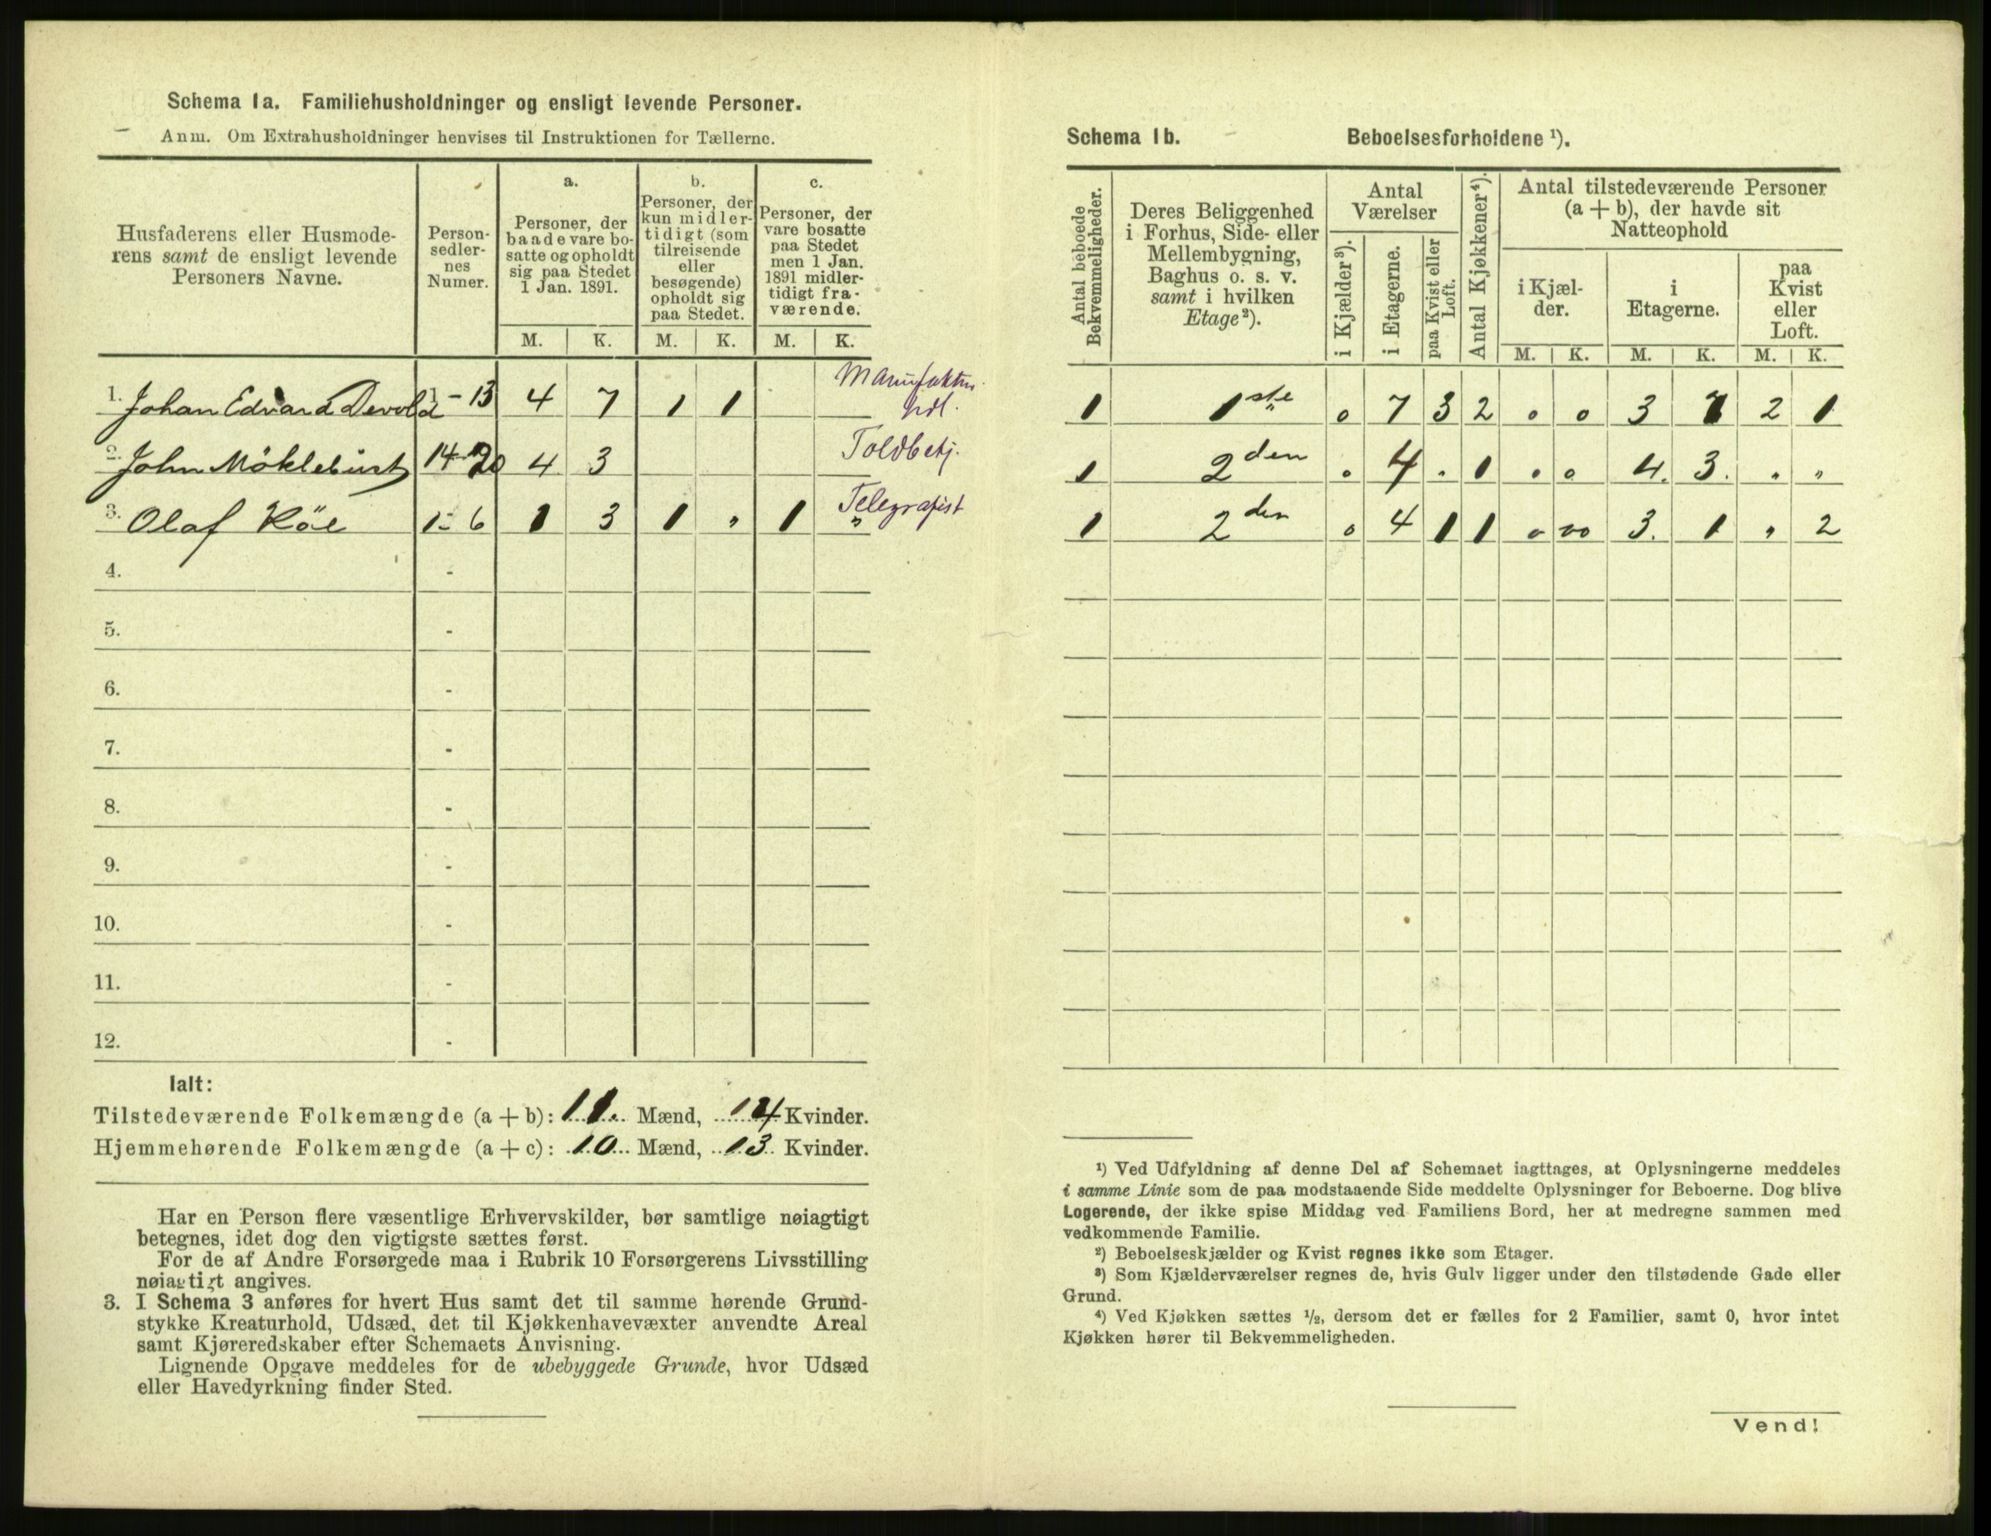 Schema 1a. Familiehusholdninger og ensligt levende Personer.
Anm. Om Extrahusholdninger henvises til Instruktionen for Tællerne.
Husfaderens eller Husmoderens samt de ensligt levende Personers Navne.
Personsedlernes Numer.
a. Personer, der baade vare bosatte og opholdt sig paa Stedet 1 Jan. 1891.
b. Personer, der kun midlertidigt (som tilreisende eller besøgende) opholdt sig paa Stedet.
c. Personer, der vare bosatte paa Stedet men 1 Jan. 1891 midlertidigt fraværende.
M. K. M. K. M. K.
1. Johan Edvard Devold 1 - 13 4 7 1 1 Manufaktur hdl.
2. John Möklebust 14 - 20 4 3 Toldbetj.
3. Olaf Röe 1 - 6 1 3 1 " 1 " Telegrafist
4. -
5. -
6. -
7. -
8. -
9. -
10. -
11. -
12. -
Ialt:
Tilstedeværende Folkemængde (a + b): 11 Mænd, 14 Kvinder.
Hjemmehørende Folkemængde (a + c): 10 Mænd, 13 Kvinder.
Har en Person flere væsentlige Erhvervskilder, bør samtlige nøiagtigt
betegnes, idet dog den vigtigste sættes først.
For de af Andre Forsørgede maa i Rubrik 10 Forsørgerens Livsstilling
nøiagtigt angives.
3. I Schema 3 anføres for hvert Hus samt det til samme hørende Grund-
stykke Kreaturhold, Udsæd, det til Kjøkkenhavevæxter anvendte Areal
samt Kjøreredskaber efter Schemaets Anvisning.
Lignende Opgave meddeles for de ubebyggede Grunde, hvor Udsæd
eller Havedyrkning finder Sted.
Schema 1b. Beboelsesforholdene ¹).
Antal beboede Bekvemmeligheder.
Deres Beliggenhed i Forhus, Side- eller Mellembygning, Baghus o. s. v. samt i hvilken Etage²).
Antal Værelser
i Kjælder³).
i Etagerne.
paa Kvist eller Loft.
Antal Kjøkkener⁴).
Antal tilstedeværende Personer (a + b), der havde sit Natteophold
i Kjælder.
i Etagerne.
paa Kvist eller Loft.
M. K. M. K. M. K.
1 1ste 0 7 3 2 0 0 3 7 2 1
1 2den 0 4 . 1 0 0 4. 3. " "
1 2den 0 4 1 1 0 00 3. 1 " 2
¹) Ved Udfyldning af denne Del af Schemaet iagttages, at Oplysningerne meddeles
i samme Linie som de paa modstaaende Side meddelte Oplysninger for Beboerne. Dog blive
Logerende, der ikke spise Middag ved Familiens Bord, her at medregne sammen med
vedkommende Familie.
²) Beboelseskjælder og Kvist regnes ikke som Etager.
³) Som Kjælderværelser regnes de, hvis Gulv ligger under den tilstødende Gade eller
Grund.
⁴) Ved Kjøkken sættes ½, dersom det er fælles for 2 Familier, samt 0, hvor intet
Kjøkken hører til Bekvemmeligheden.
Vend!